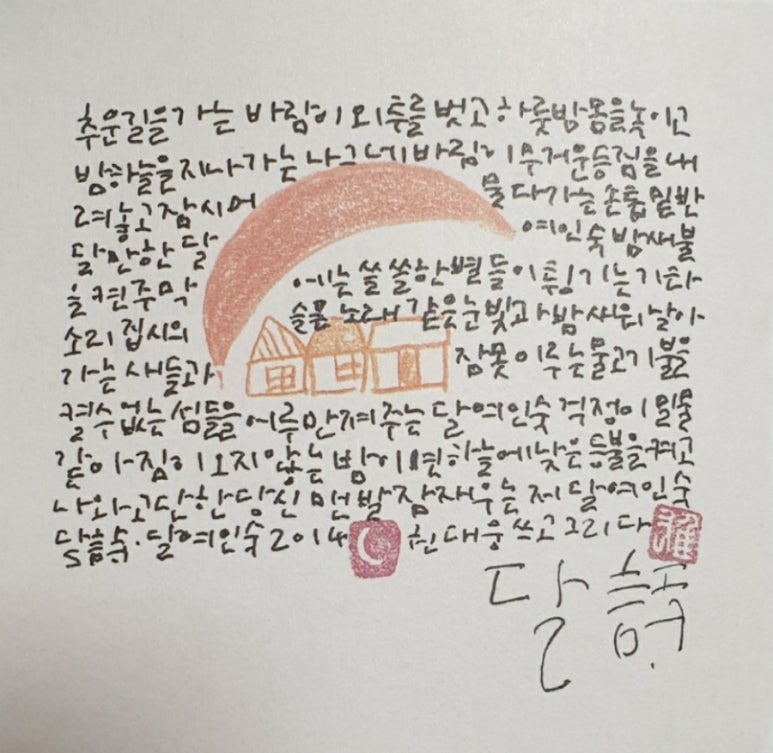 추운길을가는 바람이 외투를 벗고 하룻밤몸을녹이고
밤하늘을지나가는 나그네바람이 무거운등짐을 내
려놓고잠시머 물다가는손톱밑반
달만한 달 여인숙 밤새불
을켠주막 에는 쓸쓸한별들이 튕기는기타
소리 집시의 슬픈 노래 같은눈빛과 밤새워 날아
가는 새들과 잠못 이루는물고기불을
켤수없는 섬들을 어루만져주는 달여인숙 걱정이 밀물
같아 잠이오지않는 밤이면 하늘에낮은 등불을켜고
나와 고단한 당신 맨발 잠재우는 제 달여인숙
달여인숙 2014 권대웅 쓰고그리다
달